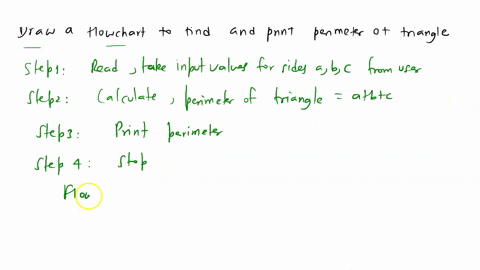 Draw a flowchart to find and print perimeter of triangle
Step1: Read, take input values for sides a,b,c from user
Step2: Calculate, perimeter of triangle = a+b+c
Step3: Print perimeter
Step 4: Stop
Flow